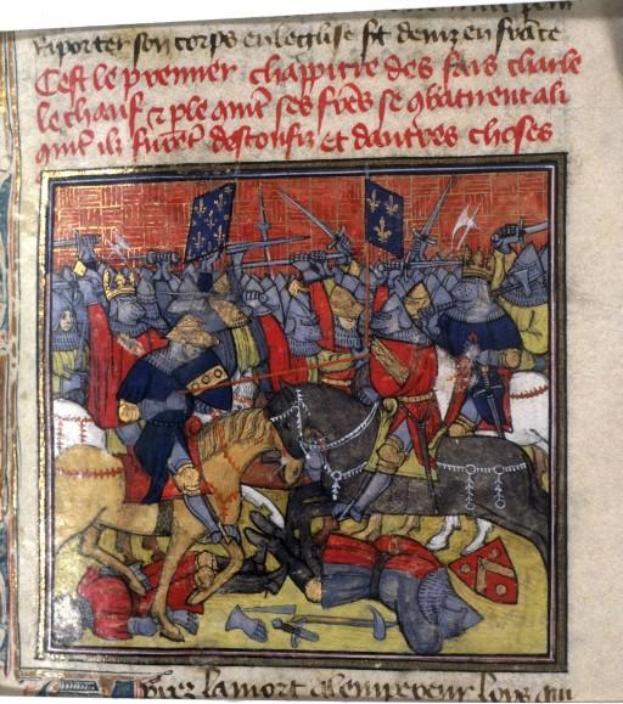 raporter son corps en leglise st denis en frāce
Cest le premier chappitre des fais charle
le chauf ⁊ ple qmēt ses frēs se ꝯbatirent a li
qmēt ilz furēt desconfiz et dautres choses
Apres la mort lempereur loys qui